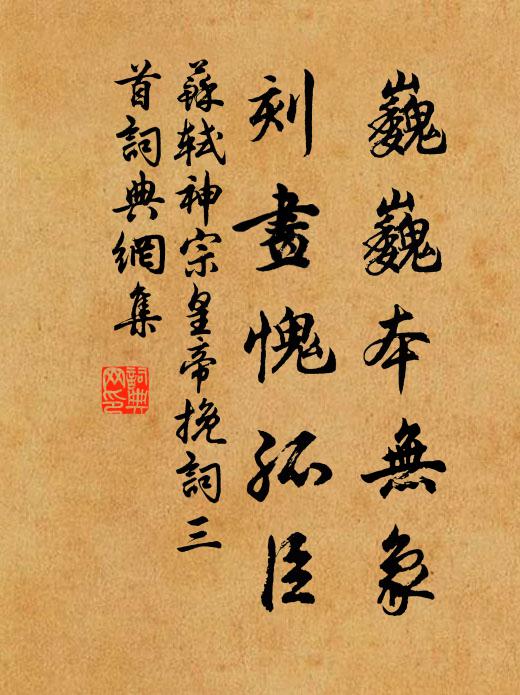 巍巍本無象
刻畫愧孤臣
蘇軾神宗皇帝挽詞三
首詞典網集
詞典
网印